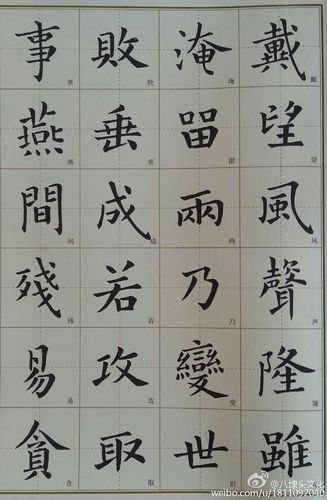 戴望風聲隆雖
戴望风声隆
淹留兩乃變世
淹留两乃变世
敗垂成若攻取
败垂成若攻取
事燕間殘易貪
事燕间残易贪
@八埭头文化
weibo.com/u/1811092040